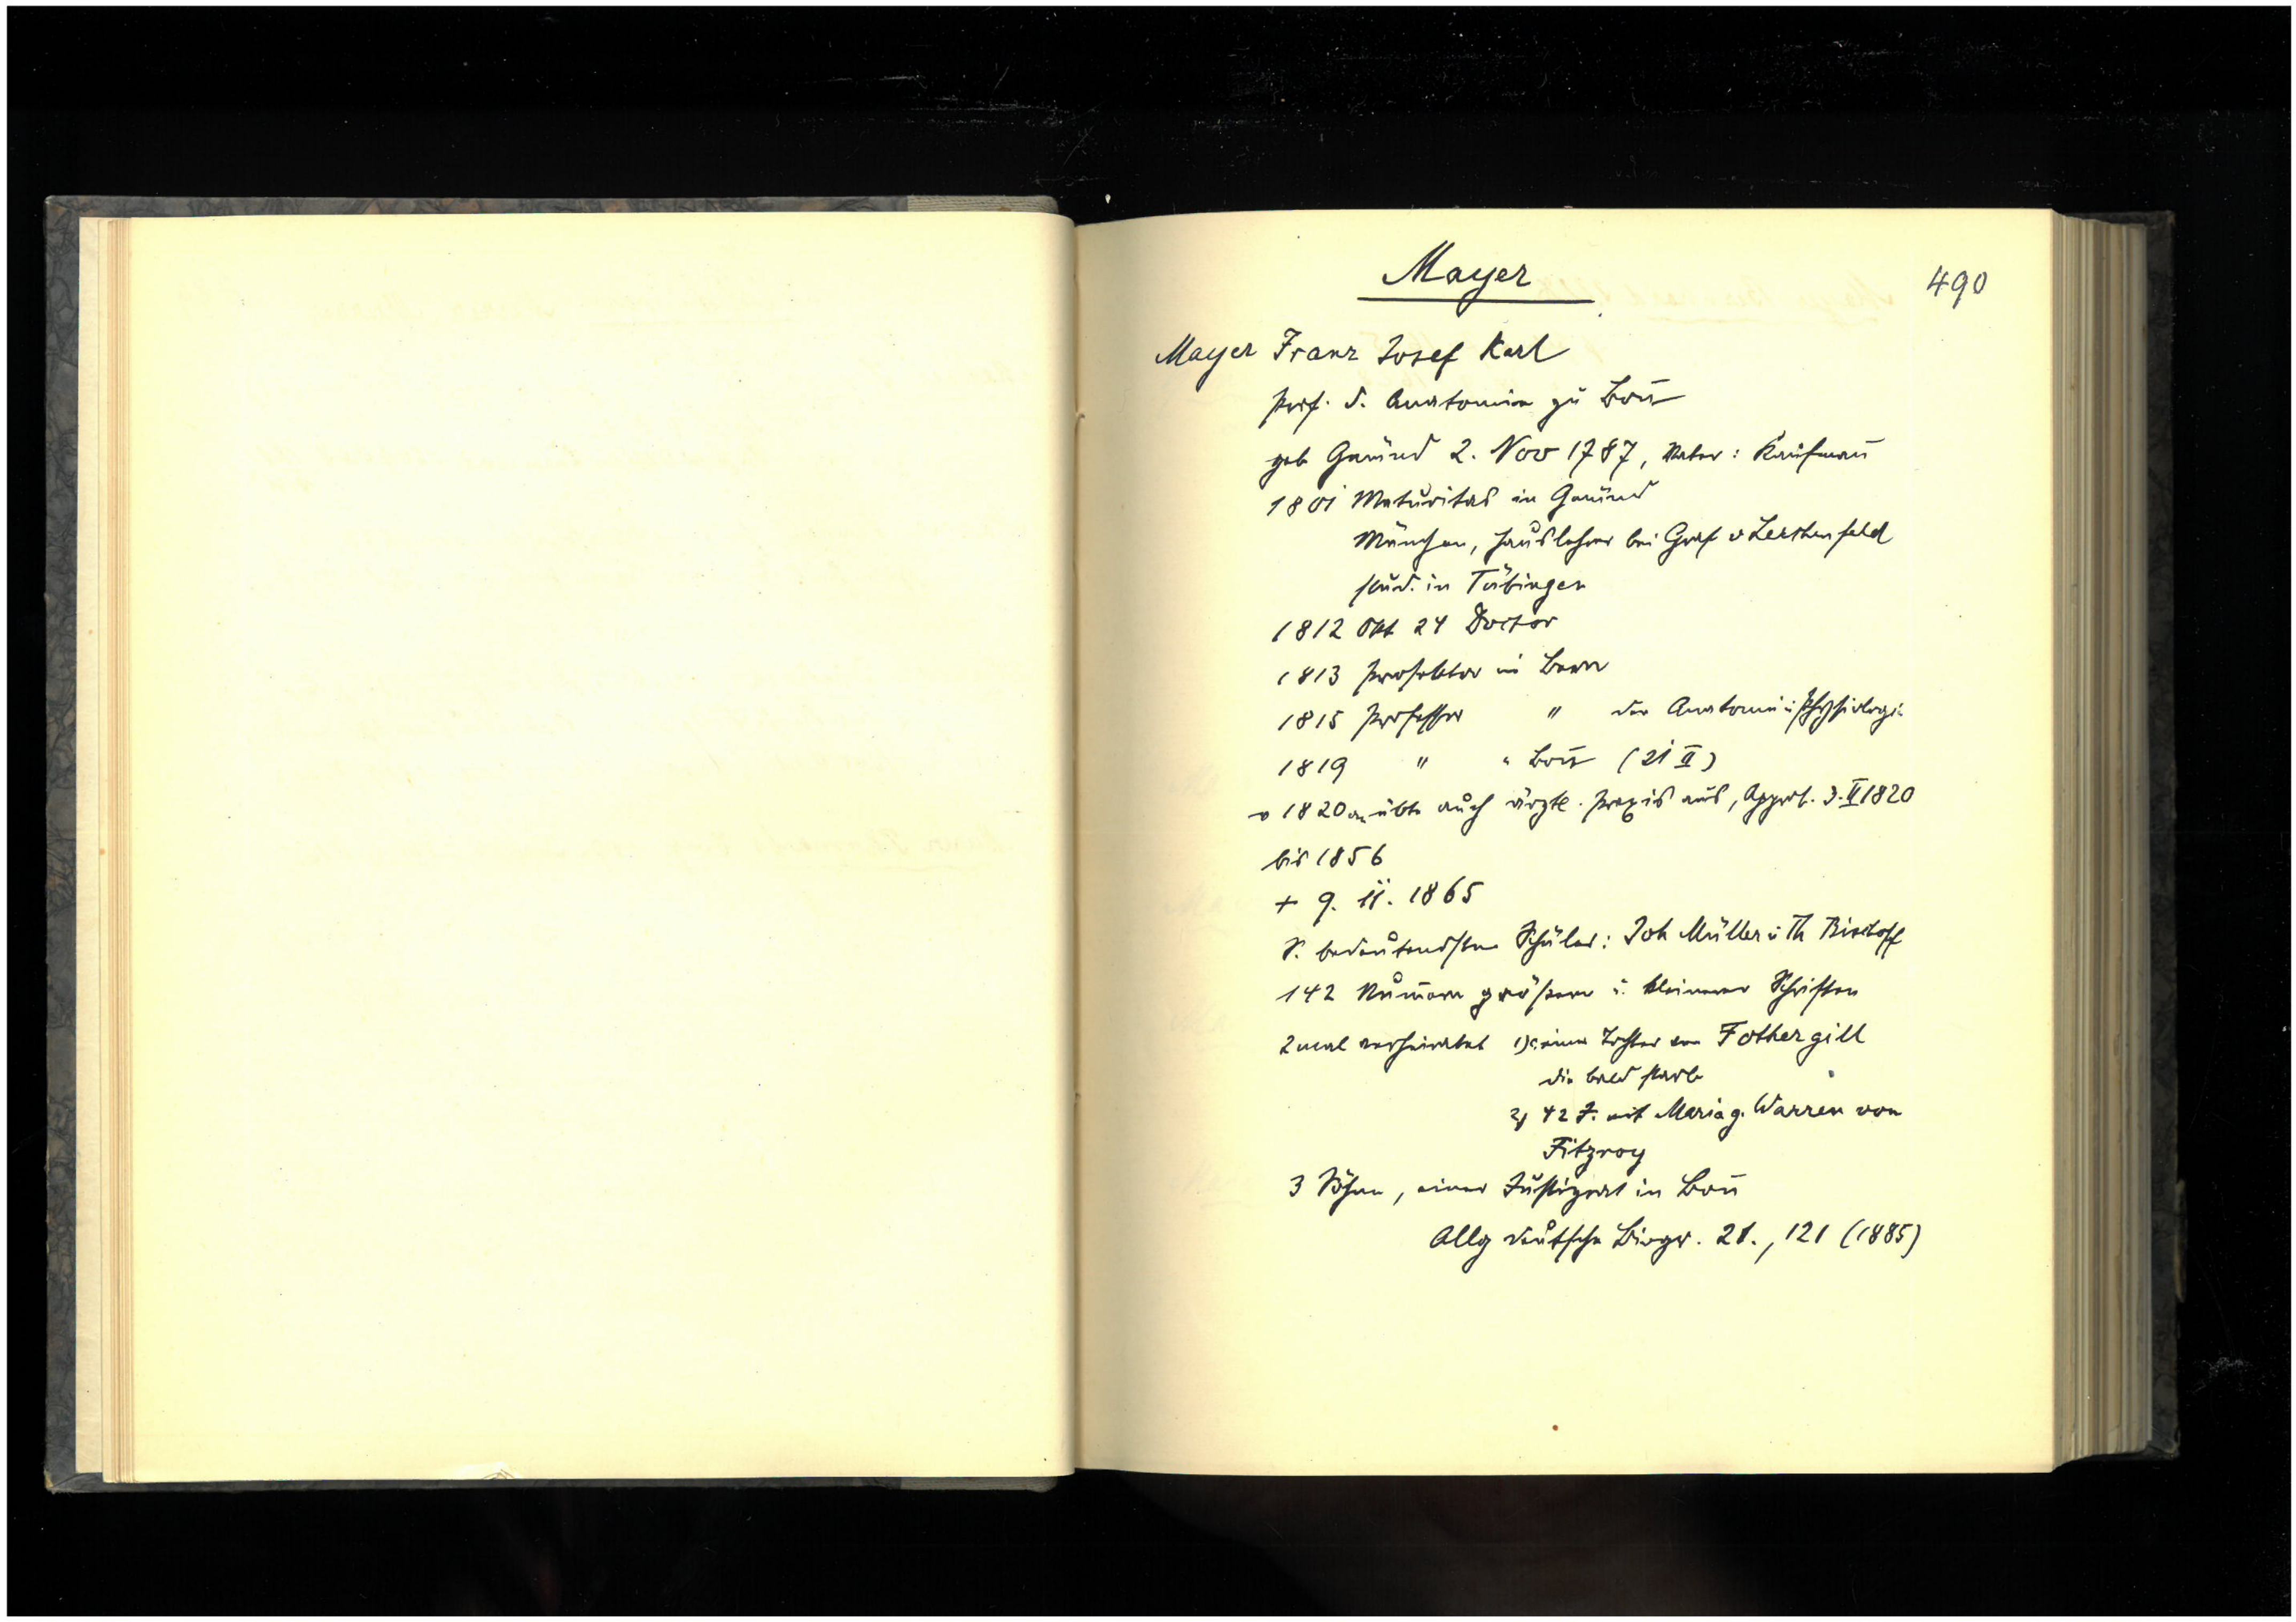 Mayer
490
Mayer Franz Josef Karl
Prof. d. Anatomie zu Bon̄
geb Gmünd 2. Nov 1787, Vater: Kaufman̄
1801 Maturitas in Gmünd
München, Hauslehrer bei Graf v Lerchenfeld
stud. in Tübingen
1812 Okt 24 Doctor
1813 Prosektor in Bern
1815 Professor " der Anatomie u Physiologie
1819 " " Bon̄ (21 II)
v 1820 an übte auch ärztl. Praxis aus, Approb. 3. II 1820
bis 1856
+ 9. 11. 1865
S. bedeutendsten Schüler: Joh Müller u Th Bischoff
142 Num̄ern größere u. kleinerer Schriften
2 mal verheiratet 1) einer Tochter von Fothergill
die bald starb
2) 42 J. mit Maria g. Warren von
Fitzroy
3 Söhne, einer Justizrat in Bon̄
Allg deutsche Biogr. 21., 121 (1885)